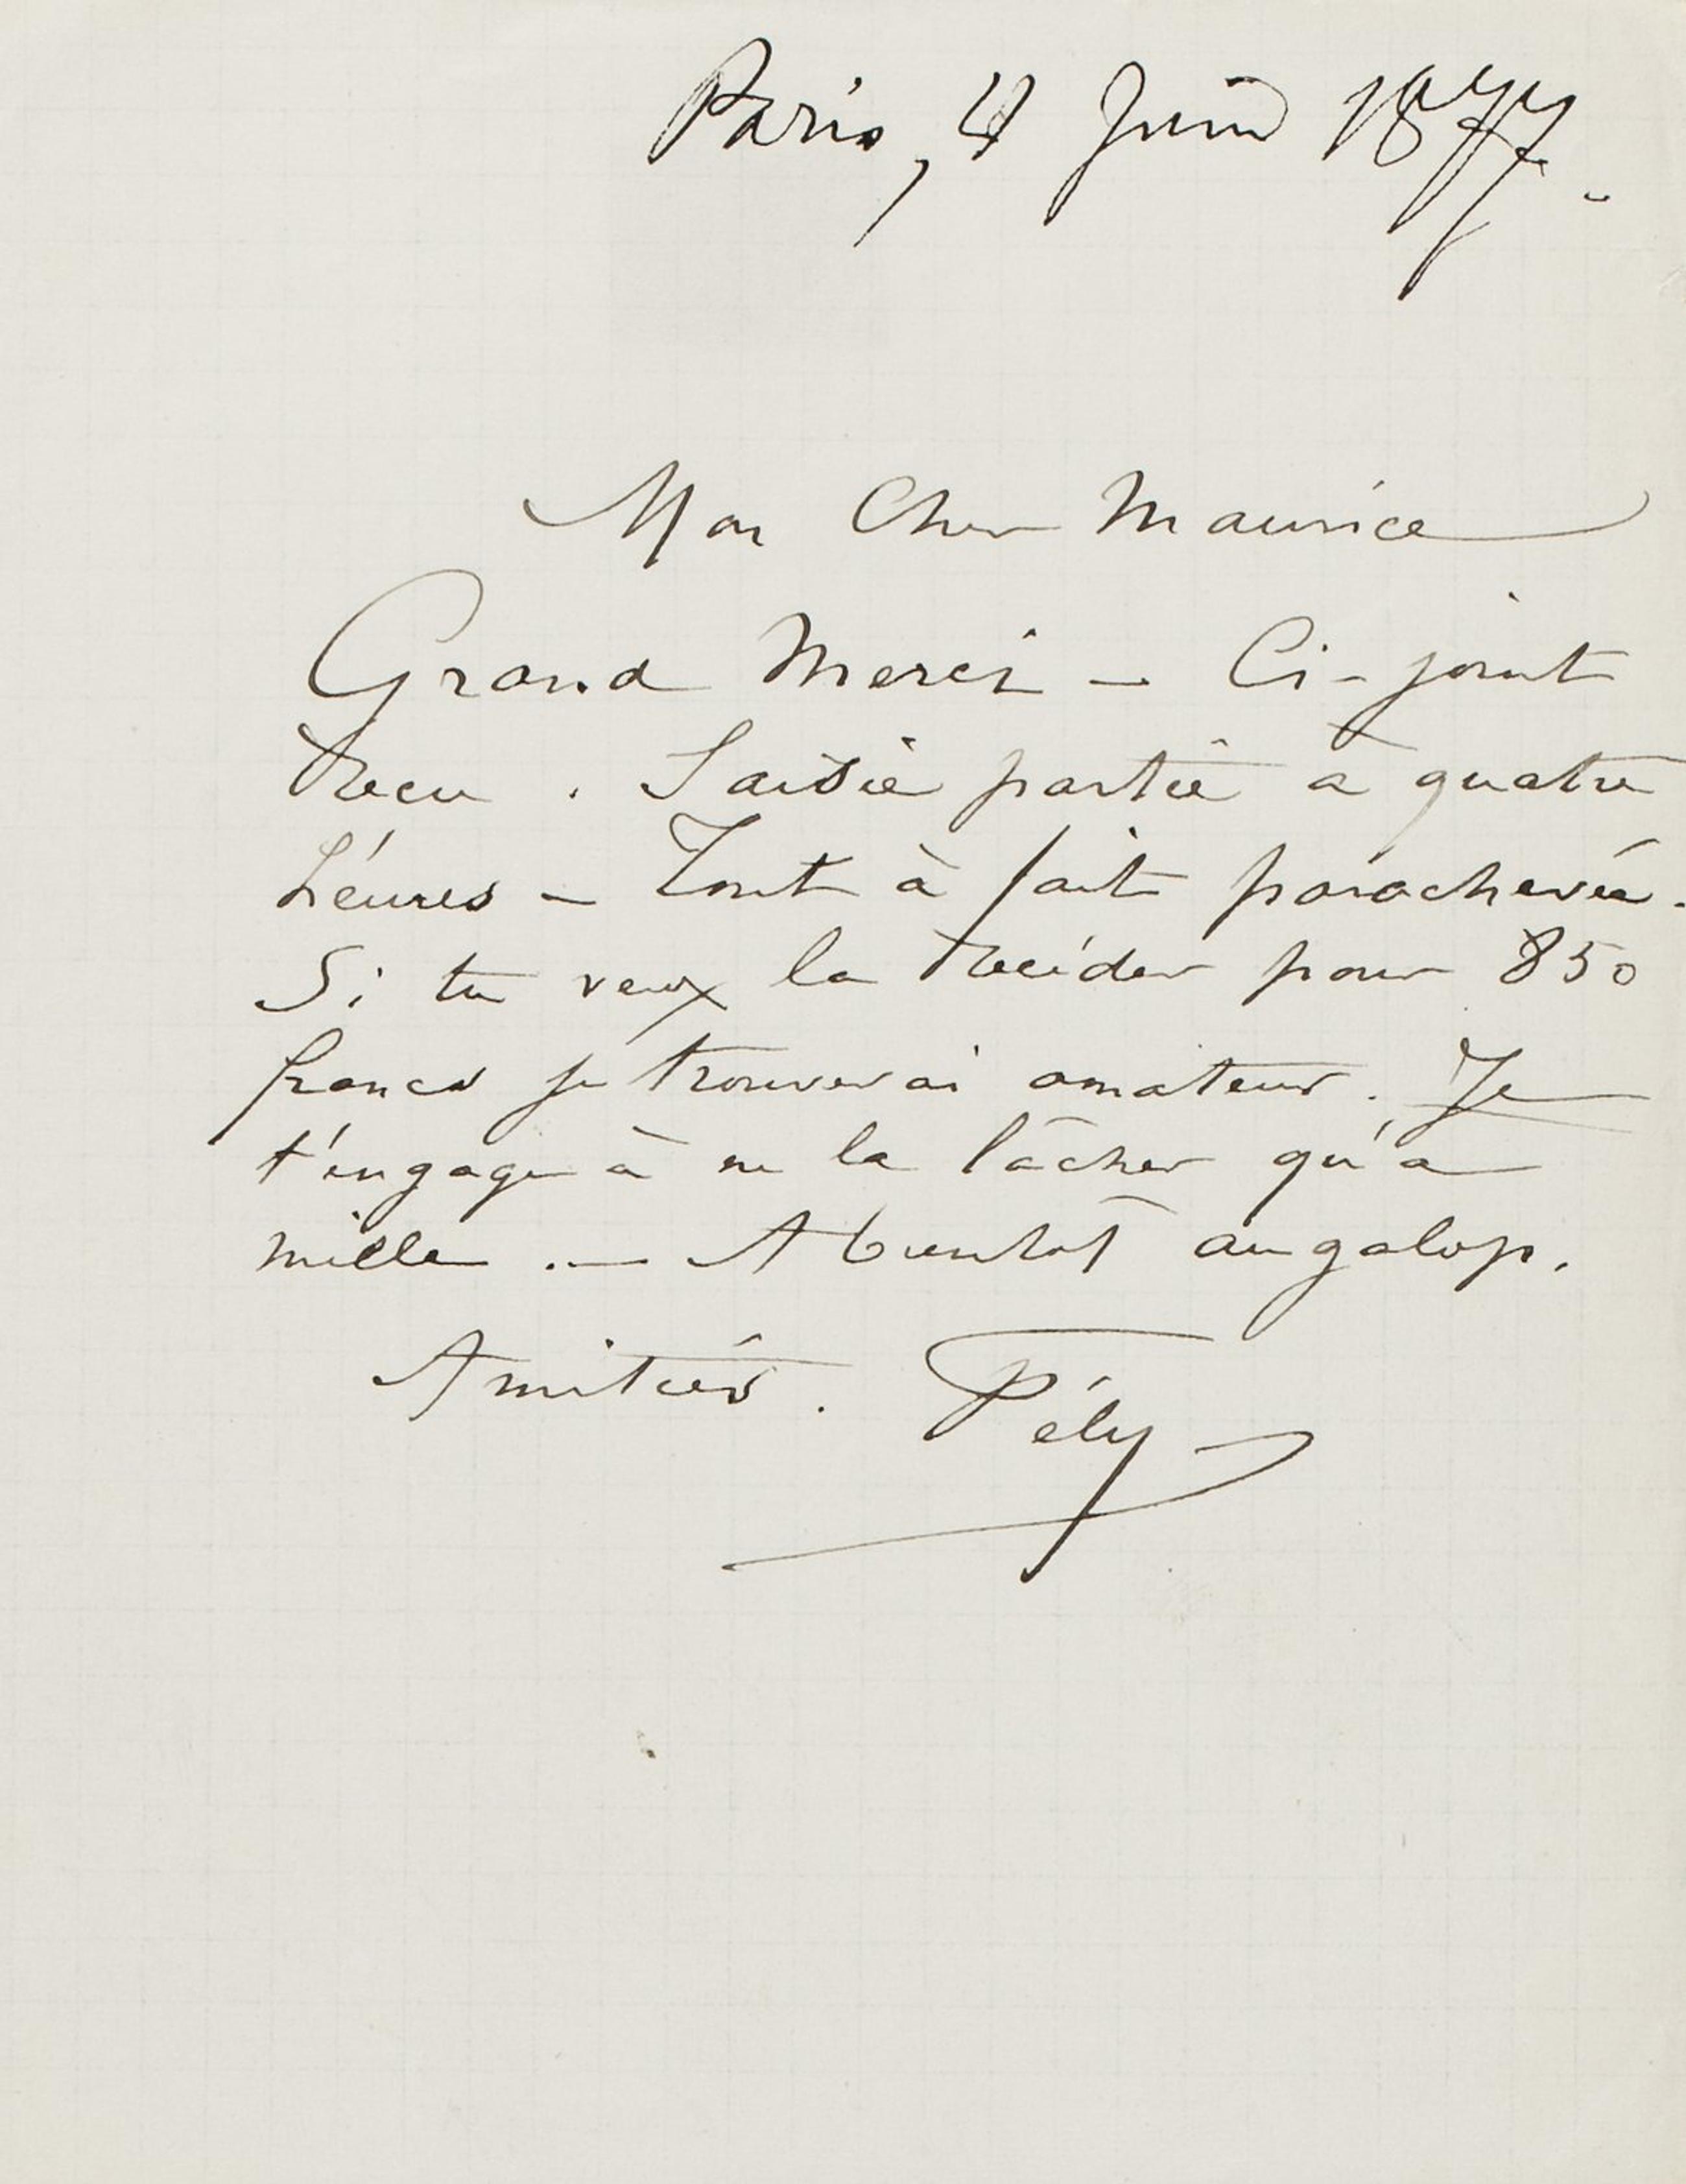 Paris, 4 Juin 1877.
Mon Cher Maurice
Grand Merci – Ci-joint
Recu. Saisie partie à quatre
héures – Tout à fait parachevée.
Si tu veux la Recéder pour 850
francs je trouverai amateur. Je
t'engage à ne la lâcher qu'à
mille. — A bientôt au galop.
Amitiés. Fély